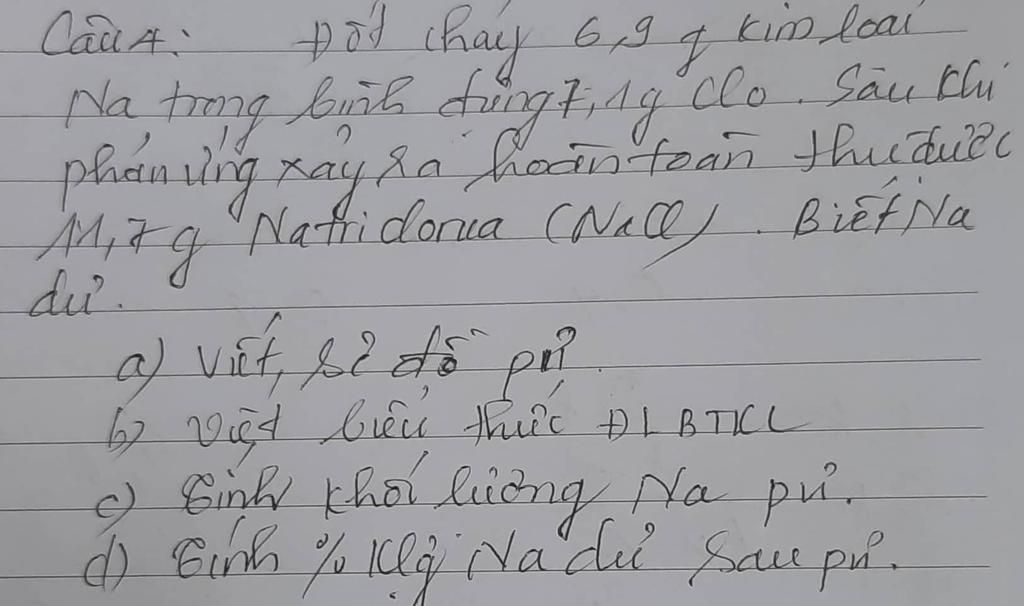 Câu 4: Đốt cháy 6,9 g kim loại
Na trong bình đựng 7,1g Clo. Sau khi
phản ứng xảy ra hoàn toàn thu được
11,7 g Natri clorua (NaCl). Biết Na
dư.
a) Viết sơ đồ pứ.
b) Viết biểu thức ĐLBTKL
c) Tính khối lượng Na pứ.
d) Tính % klg Na dư sau pứ.